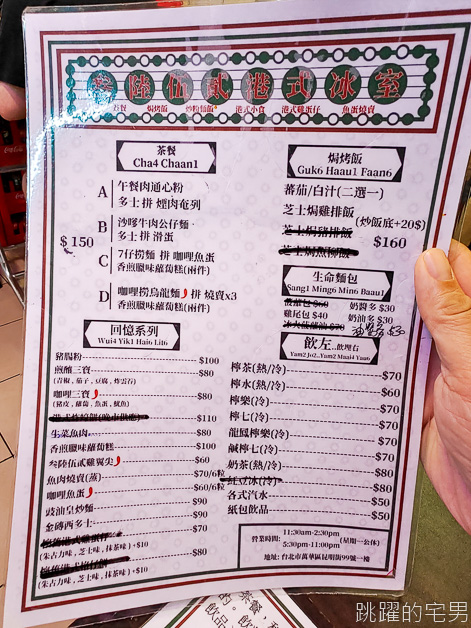 叁陸伍貳港式冰室
茶餐 焗烤飯 炒粉麵飯 港式小食 港式雞蛋仔 魚蛋燒賣
茶餐
Cha4 Chaan1
A 午餐肉通心粉
多士拼 煙肉奄列
B 沙嗲牛肉公仔麵
多士拼 滑蛋
$150
C 7仔撈麵 拼 咖哩魚蛋
香煎臘味蘿蔔糕(兩件)
D 咖哩撈烏龍麵 拼 燒賣x3
香煎臘味蘿蔔糕(兩件)
焗烤飯
Guk6 Haau1 Faan6
蕃茄/白汁(二選一)
芝士焗雞排飯
(炒飯底+20$)
芝士焗豬排飯
$160
芝士焗魚柳飯
生命麵包
Sang1 Ming6 Min6 Baau1
菠蘿包 $60
奶醬多 $30
雞尾包 $40
奶油多 $30
冰火菠蘿油 $70
油占多 $30
回憶系列
Wui4 Yik1 Hai6 Lit6
豬腸粉 $100
煎釀三寶 $80
(青椒, 茄子, 豆腐, 炸雲石)
咖哩三寶 $80
(豬皮, 蘿蔔, 魚蛋, 魷魚)
$110
生菜魚肉 $80
香煎臘味蘿蔔糕 $100
叁陸伍貳雞翼尖 $60
魚肉燒賣(蒸) $70/6粒
咖哩魚蛋 $60/6粒
豉油皇炒麵 $90
金磚西多士 $90
$70
(朱古力味, 芝士味, 抹茶味) +$10
$80
(朱古力味, 芝士味, 抹茶味) +$10
飲左..飲埋右
Yam2 Jo2..Yam2 Maai4 Yau6
檸茶(熱/冷) $70
檸水(熱/冷) $60
檸樂(熱/冷) $70
檸七(熱/冷) $70
龍鳳檸樂(冷) $80
鹹檸七(冷) $70
奶茶(熱/冷) $70
紅豆冰(冷) $80
各式汽水 $50
紙包飲品 $50
營業時間: 11:30am-2:30pm
5:30pm-11:00pm (星期一公休)
地址: 台北市萬華區昆明街99號一樓
跳躍的宅男